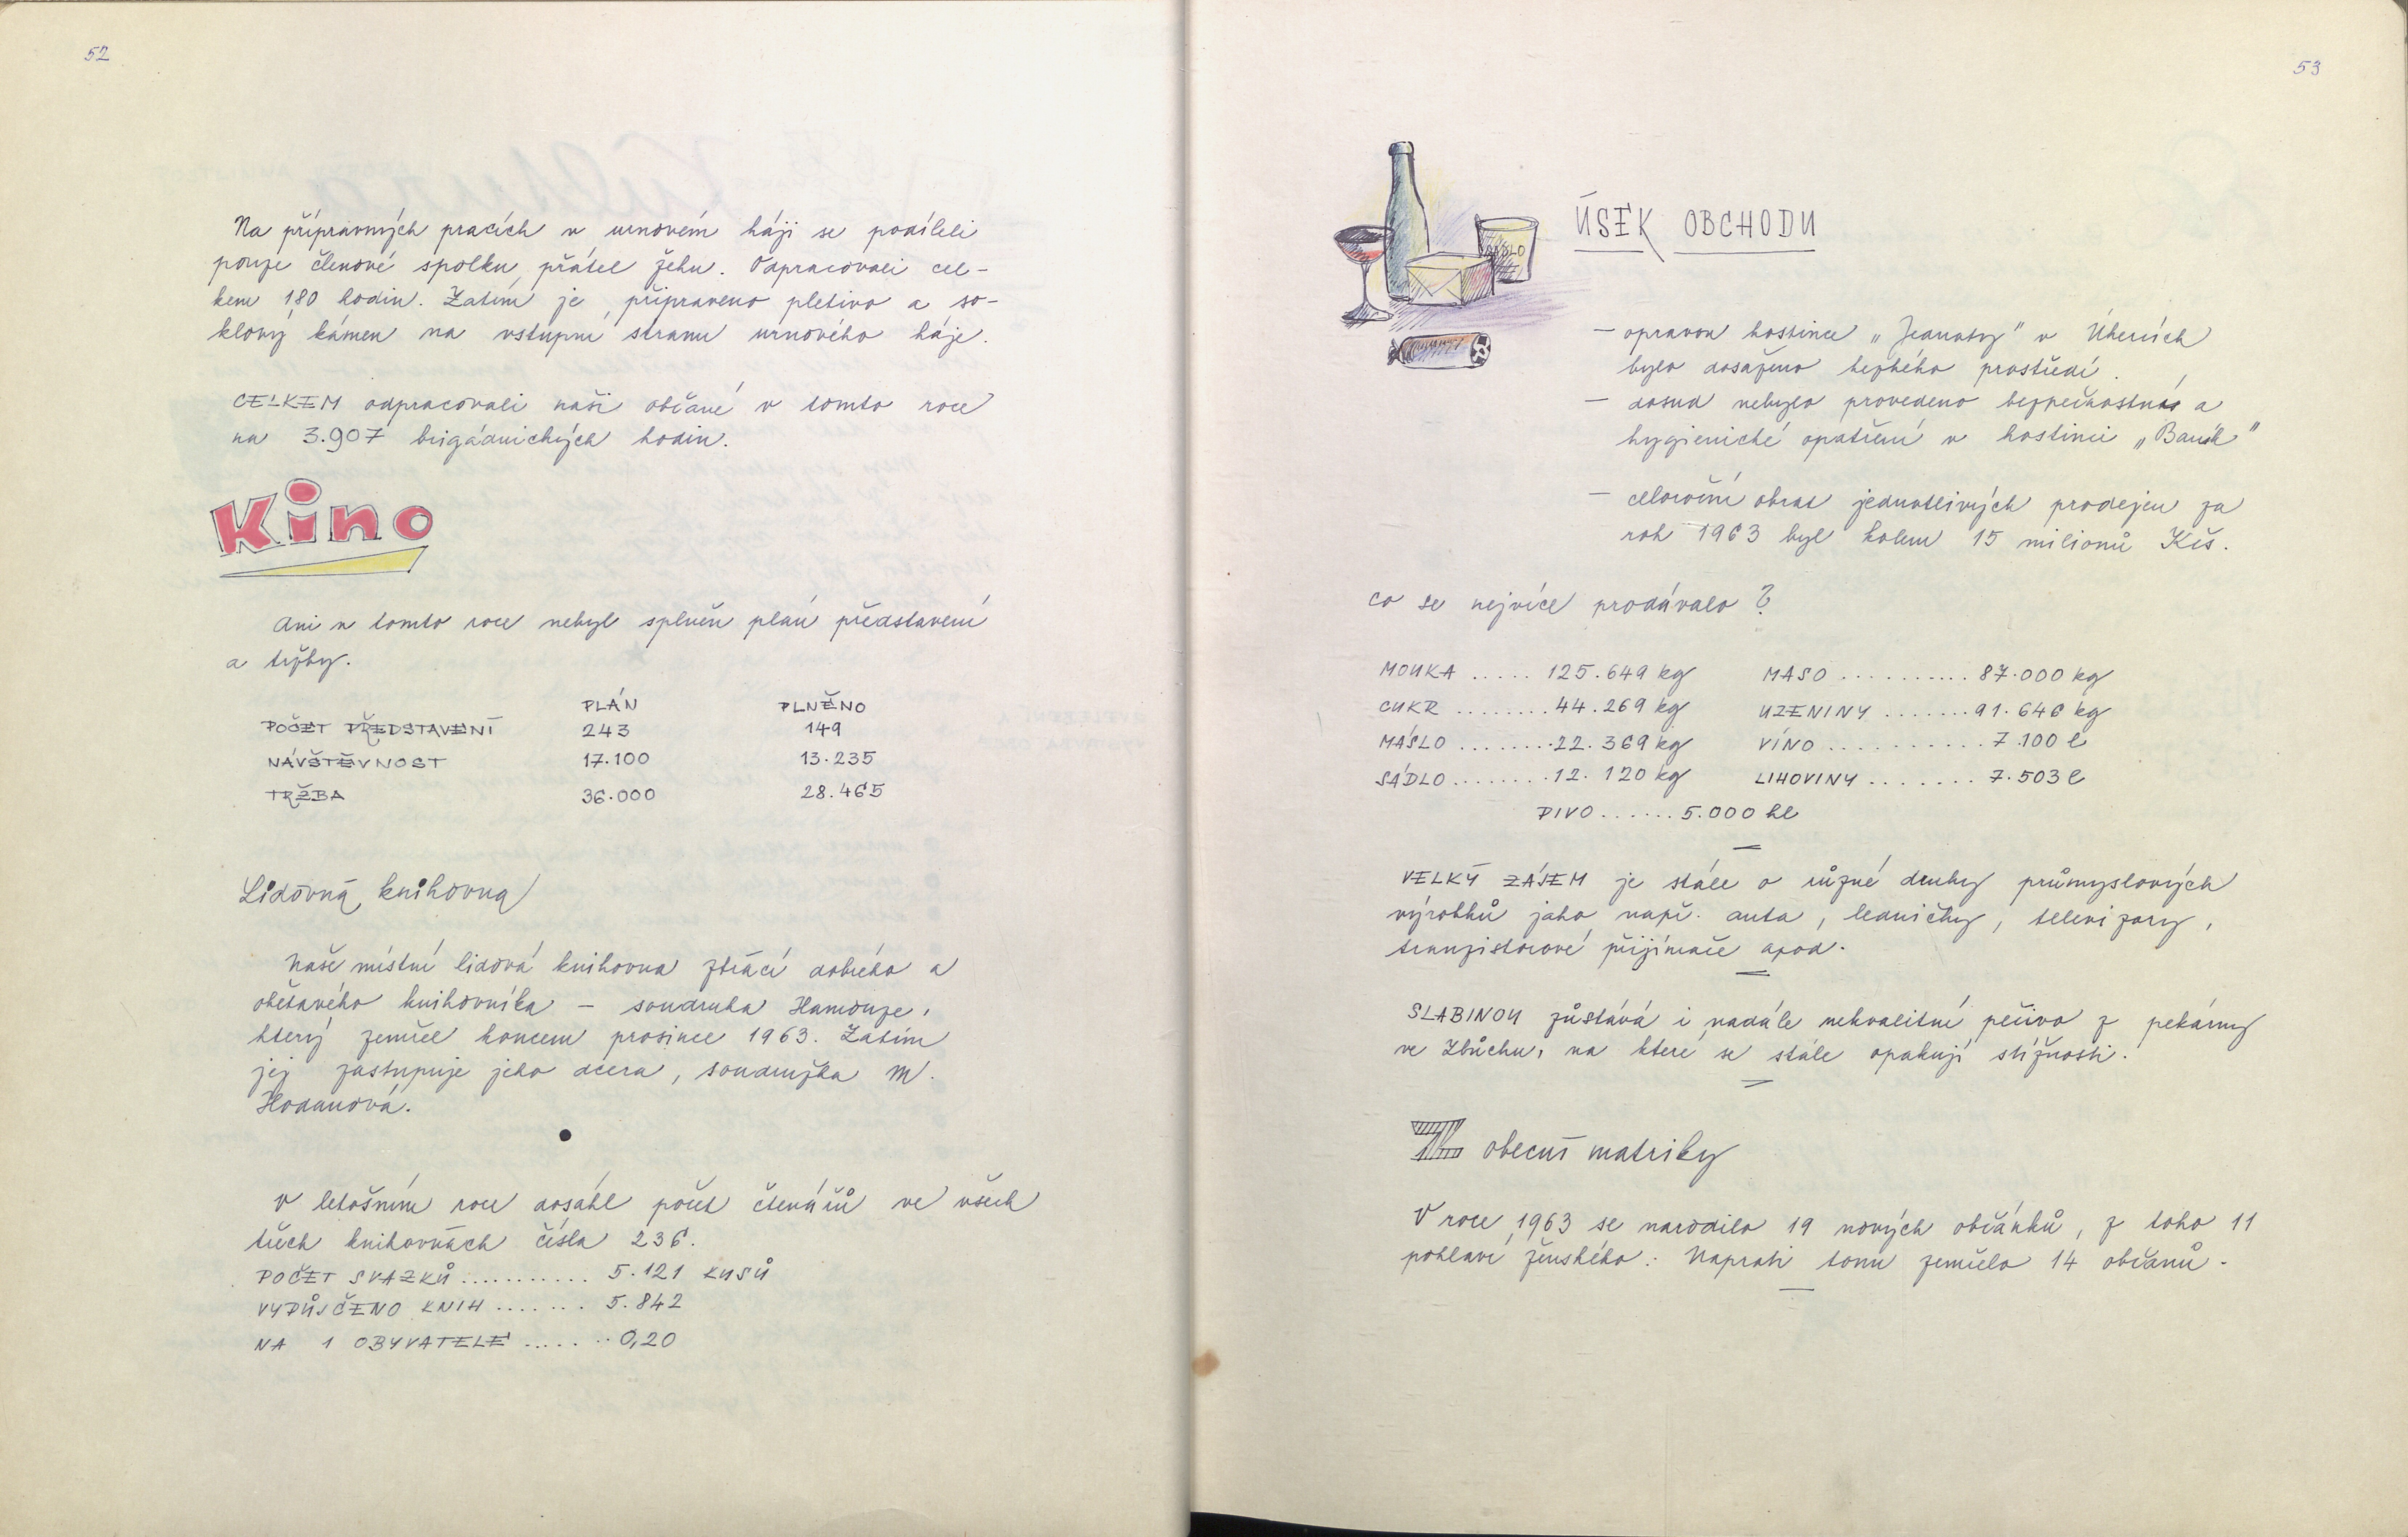 52
Na přípravných pracích v urnovém háji se podíleli
pouze členové spolku přátel žehu. Odpracovali cel-
kem 180 hodin. Zatím je připraveno pletivo a so-
klový kámen na vstupní stranu urnového háje.
CELKEM odpracovali naši občané v tomto roce
na 3.907 brigádnických hodin.
Kino
Ani v tomto roce nebyl splněn plán představení
a tržby.
PLÁN PLNĚNO
POČET PŘEDSTAVENÍ 243 149
NÁVŠTĚVNOST 17.100 13.235
TRŽBA 36.000 28.465
Lidová knihovna
Naše místní lidová knihovna ztrácí dobrého a
obětavého knihovníka – soudruha Hamouze,
který zemřel koncem prosince 1963. Zatím
jej zastupuje jeho dcera, soudružka M.
Hodanová.
V letošním roce dosáhl počet čtenářů ve všech
třech knihovnách čísla 236.
POČET SVAZKŮ ........... 5.121 KUSŮ
VYPŮJČENO KNIH ....... 5.842
NA 1 OBYVATELE ....... 0,20
53
SÁDLO
ÚSEK OBCHODU
– opravou hostince „Jednoty" v Úhercích
bylo dosaženo hezkého prostředí.
– dosud nebylo provedeno bezpečnostní a
hygienické opatření v hostinci „Baník"
– celoroční obrat jednotlivých prodejen za
rok 1963 byl kolem 15 milionů Kčs.
co se nejvíce prodávalo?
MOUKA ..... 125.649 kg MASO .......... 87.000 kg
CUKR ........ 44.269 kg UZENINY ....... 91.646 kg
MÁSLO ........ 22.369 kg VÍNO .......... 7.100 l
SÁDLO ........ 12.120 kg LIHOVINY ....... 7.503 l
PIVO ...... 5.000 hl
VELKÝ ZÁJEM je stále o různé druhy průmyslových
výrobků jako např. auta, ledničky, televizory,
tranzistorové přijímače apod.
SLABINOU zůstává i nadále nekvalitní pečivo z pekárny
ve Zbůchu, na které se stále opakují stížnosti.
Z obecní matriky
V roce 1963 se narodilo 19 nových občánků, z toho 11
pohlaví ženského. Naproti tomu zemřelo 14 občanů.